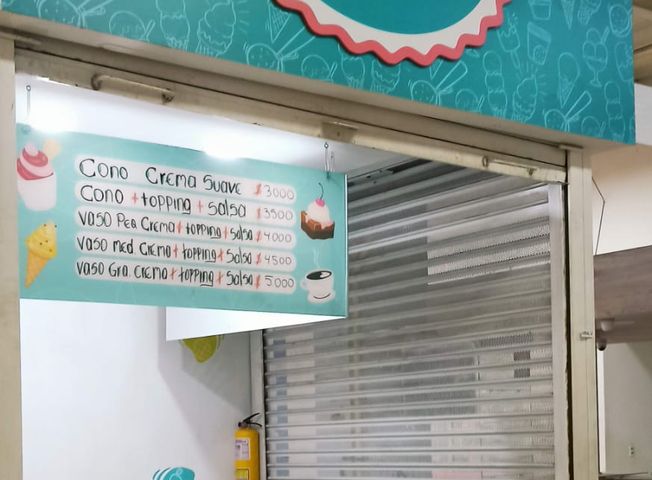 Cono Crema Suave $3000
Cono + topping + salsa $3500
Vaso Peq Crema + topping + salsa $4000
Vaso med Crema + topping + Salsa $4500
Vaso Gra Crema + topping + Salsa $5000